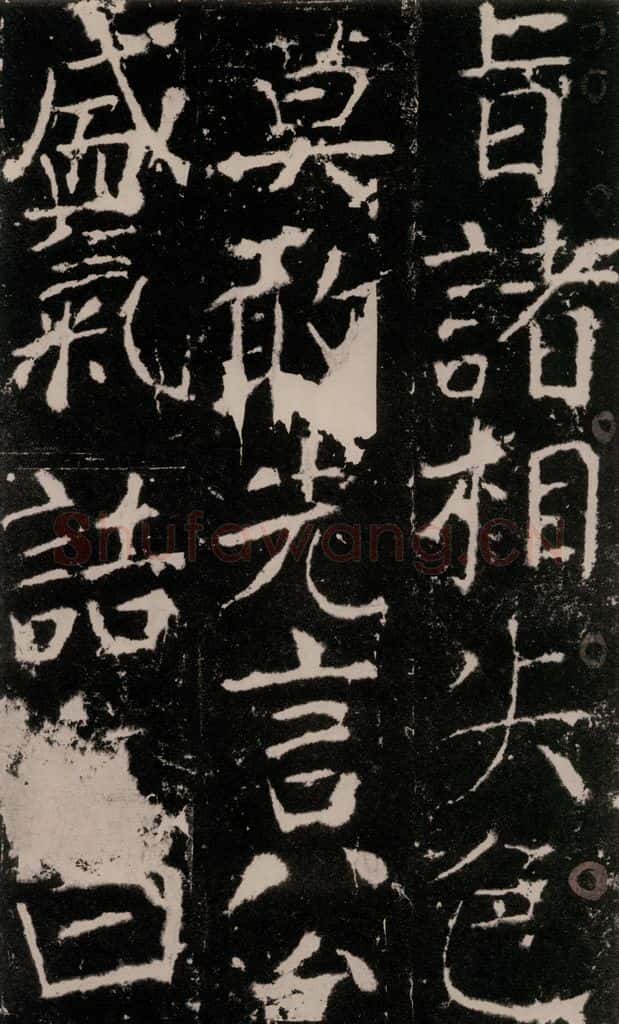 旨諸相失色
莫敢先言公
盛氣詰曰
Shufawang.CN